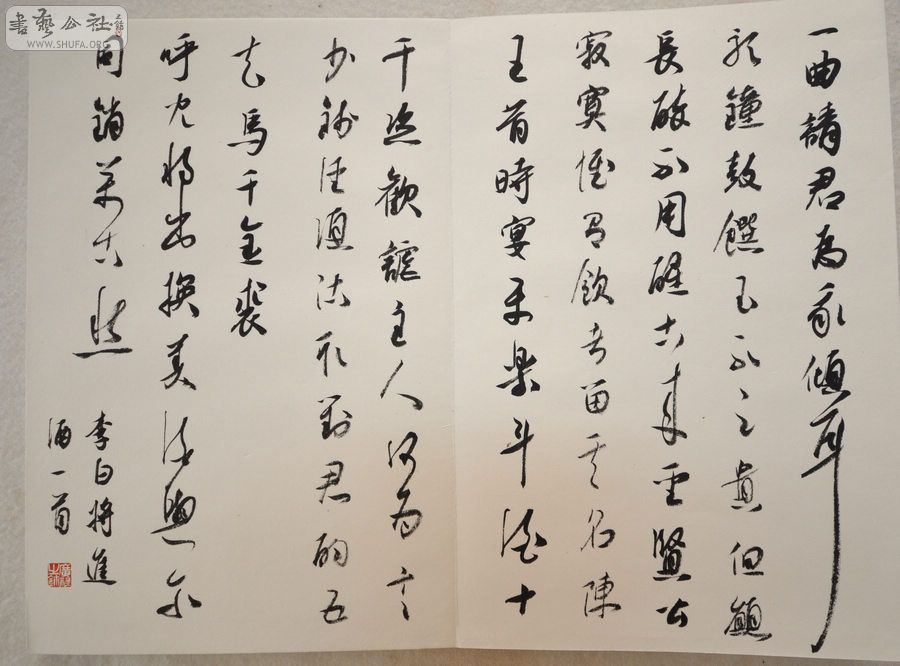 一曲請君為我傾耳
聽鐘鼓饌玉不足貴但願
長醉不用醒古來聖賢皆
寂寞惟有飲者留其名陳
王昔時宴平樂斗酒十
千恣歡謔主人何為言
少錢徑須沽取對君酌五
花馬千金裘
呼兒將出換美酒與爾
同銷萬古愁
李白將進
酒一首
書藝公社
WWW.SHUFA.ORG